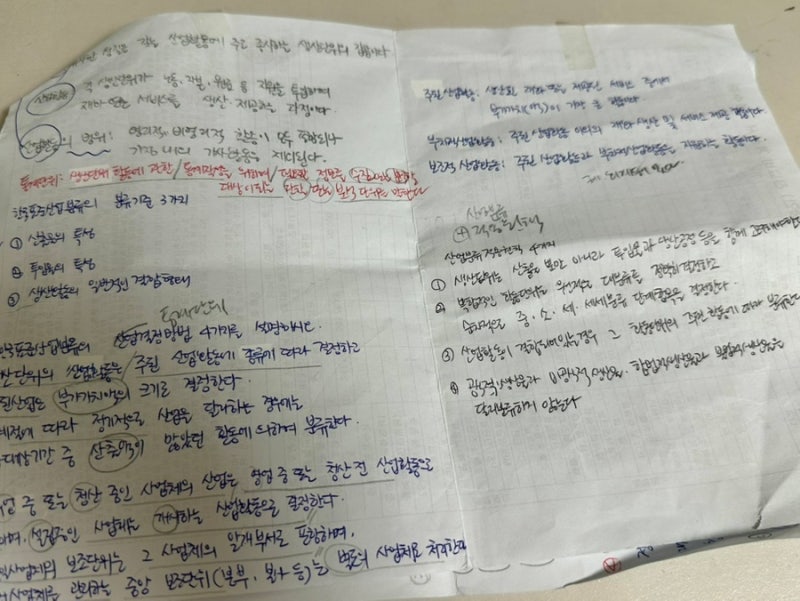 산업은 각종 산업활동에 주로 종사하는 생산단위의 집합이다
산업활동
각 생산단위가 노동, 자본, 원료 등 자원을 투입하여
재화 또는 서비스를 생산, 제공하는 과정이다.
산업활동의 범위: 영리적, 비영리적 활동이 모두 포함되나
가정 내의 가사활동은 제외된다.
통계단위: 생산단위 활동에 관한 / 통계작성을 위하여 / 필요한 정보를 수집 또는 분석할
대상이 되는 관찰 또는 분석 단위를 말한다
한국표준산업분류의 분류기준 3가지
① 산출물의 특성
② 투입물의 특성
③ 생산활동의 일반적인 결합형태
통계단위
한국표준산업분류의 산업결정방법 4가지를 설명하시오.
생산단위의 산업활동은 주된 산업활동의 종류에 따라 결정하고
주된산업은 부가가치액의 크기로 결정한다.
계절에 따라 정기적으로 산업을 달리하는 경우에는
조사대상기간 중 산출액이 많았던 활동에 의하여 분류한다.
휴업 중 또는 청산 중인 사업체의 산업은 영업 중 또는 청산 전 산업활동으로
하며, 설립중인 사업체는 개시하는 산업활동으로 결정한다.
단일사업체의 보조단위는 그 사업체의 일개부서로 포함하며,
사업체를 관리하는 중앙 보조단위(본부, 본사 등)는 별도의 사업체로 처리한다
주된 산업활동: 생산된 재화 또는 제공된 서비스 중에서
부가가치(액)이 가장 큰 활동이다
부차적산업활동: 주된 산업활동 이외의 재화 생산 및 서비스 제공 활동이다.
보조적 산업활동: 주된 산업활동과 부차적산업활동을 지원하는 활동이다.
산업분류
④ 적용원칙
산업분류적용원칙 4가지
① 생산단위는 산출물 뿐만 아니라 투입물과 생산공정 등을 함께 고려해야한다
② 복합적인 활동단위는 우선적으로 대분류를 정확히 결정하고
순차적으로 중·소·세·세세분류 단계항목을 결정한다.
③ 산업활동이 결합되어있는경우 그 활동단위의 주된 활동에 따라 분류한다
④ 공식적생산물과 비공식적 생산물, 합법적생산물과 불법적생산물은
달리분류하지 않는다